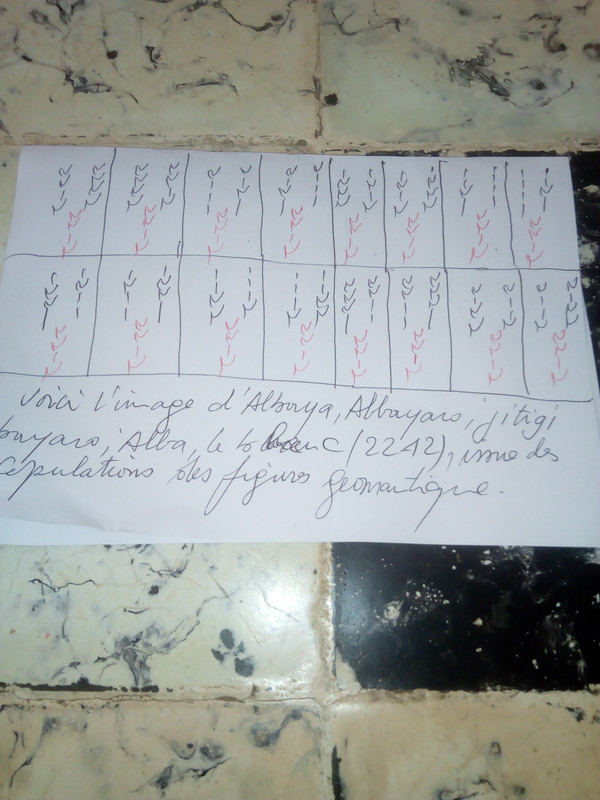 Voici l'image d'Albaya, Albayaro, jitigi
bayaro, Alba, le blanc (2212), issue des
copulations des figures geomantique.